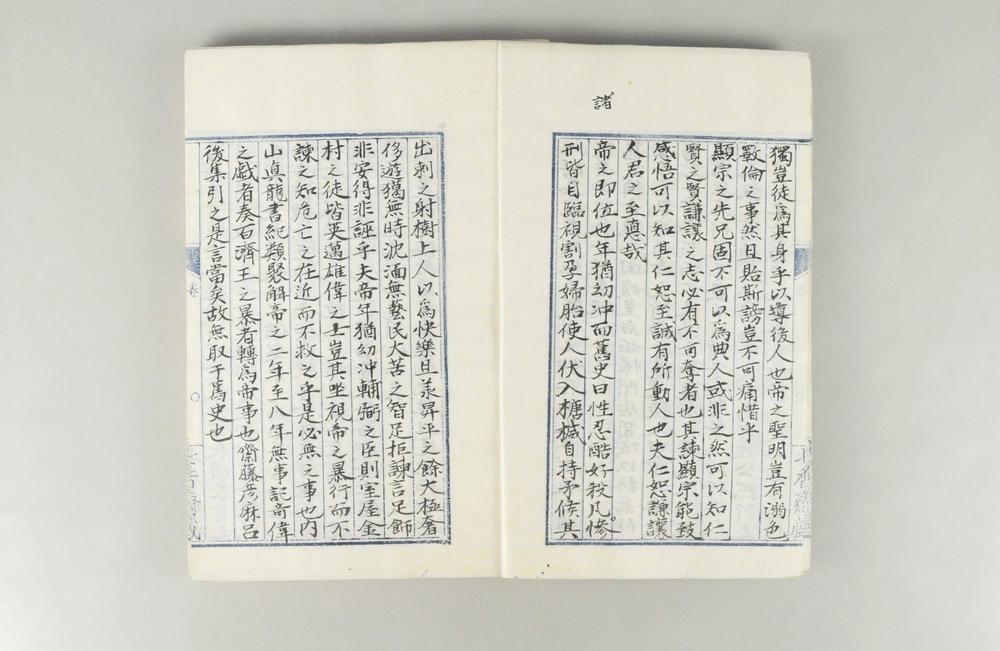 諸
獨豈徒爲其身乎以導後人也帝之聖明豈有溺色
斁倫之事然且貽斯謗豈不可痛惜乎
顯宗之先兄固不可以爲典人或非之然可以知仁
賢之賢謙讓之志必有不可奪者也其諫顯宗能致
感悟可以知其仁恕至誠有所動人也夫仁恕謙讓
人君之至悳哉
帝之即位也年猶幼冲而舊史曰性忍酷好殺凡慘
刑皆自臨視割孕婦胎使人伏入槭自持矛候其
出刺之射樹上人以爲快樂且羕昇平之餘大極奢
侈遊獦無時沈湎無藝民大苦之智足拒諫言足飾
非安得非誣乎夫帝年猶幼冲輔弼之臣則室屋金
村之徒皆英邁雄偉之士豈其坐視帝之暴行而不
諫之知危亡之在近而不救之乎是必無之事也内
山眞龍書紀類聚解帝之二年至八年無事記奇偉
之戯者奏百濟王之暴者轉爲帝事也齋藤彦麻呂
後集引之是言當矣故無取于舊史也